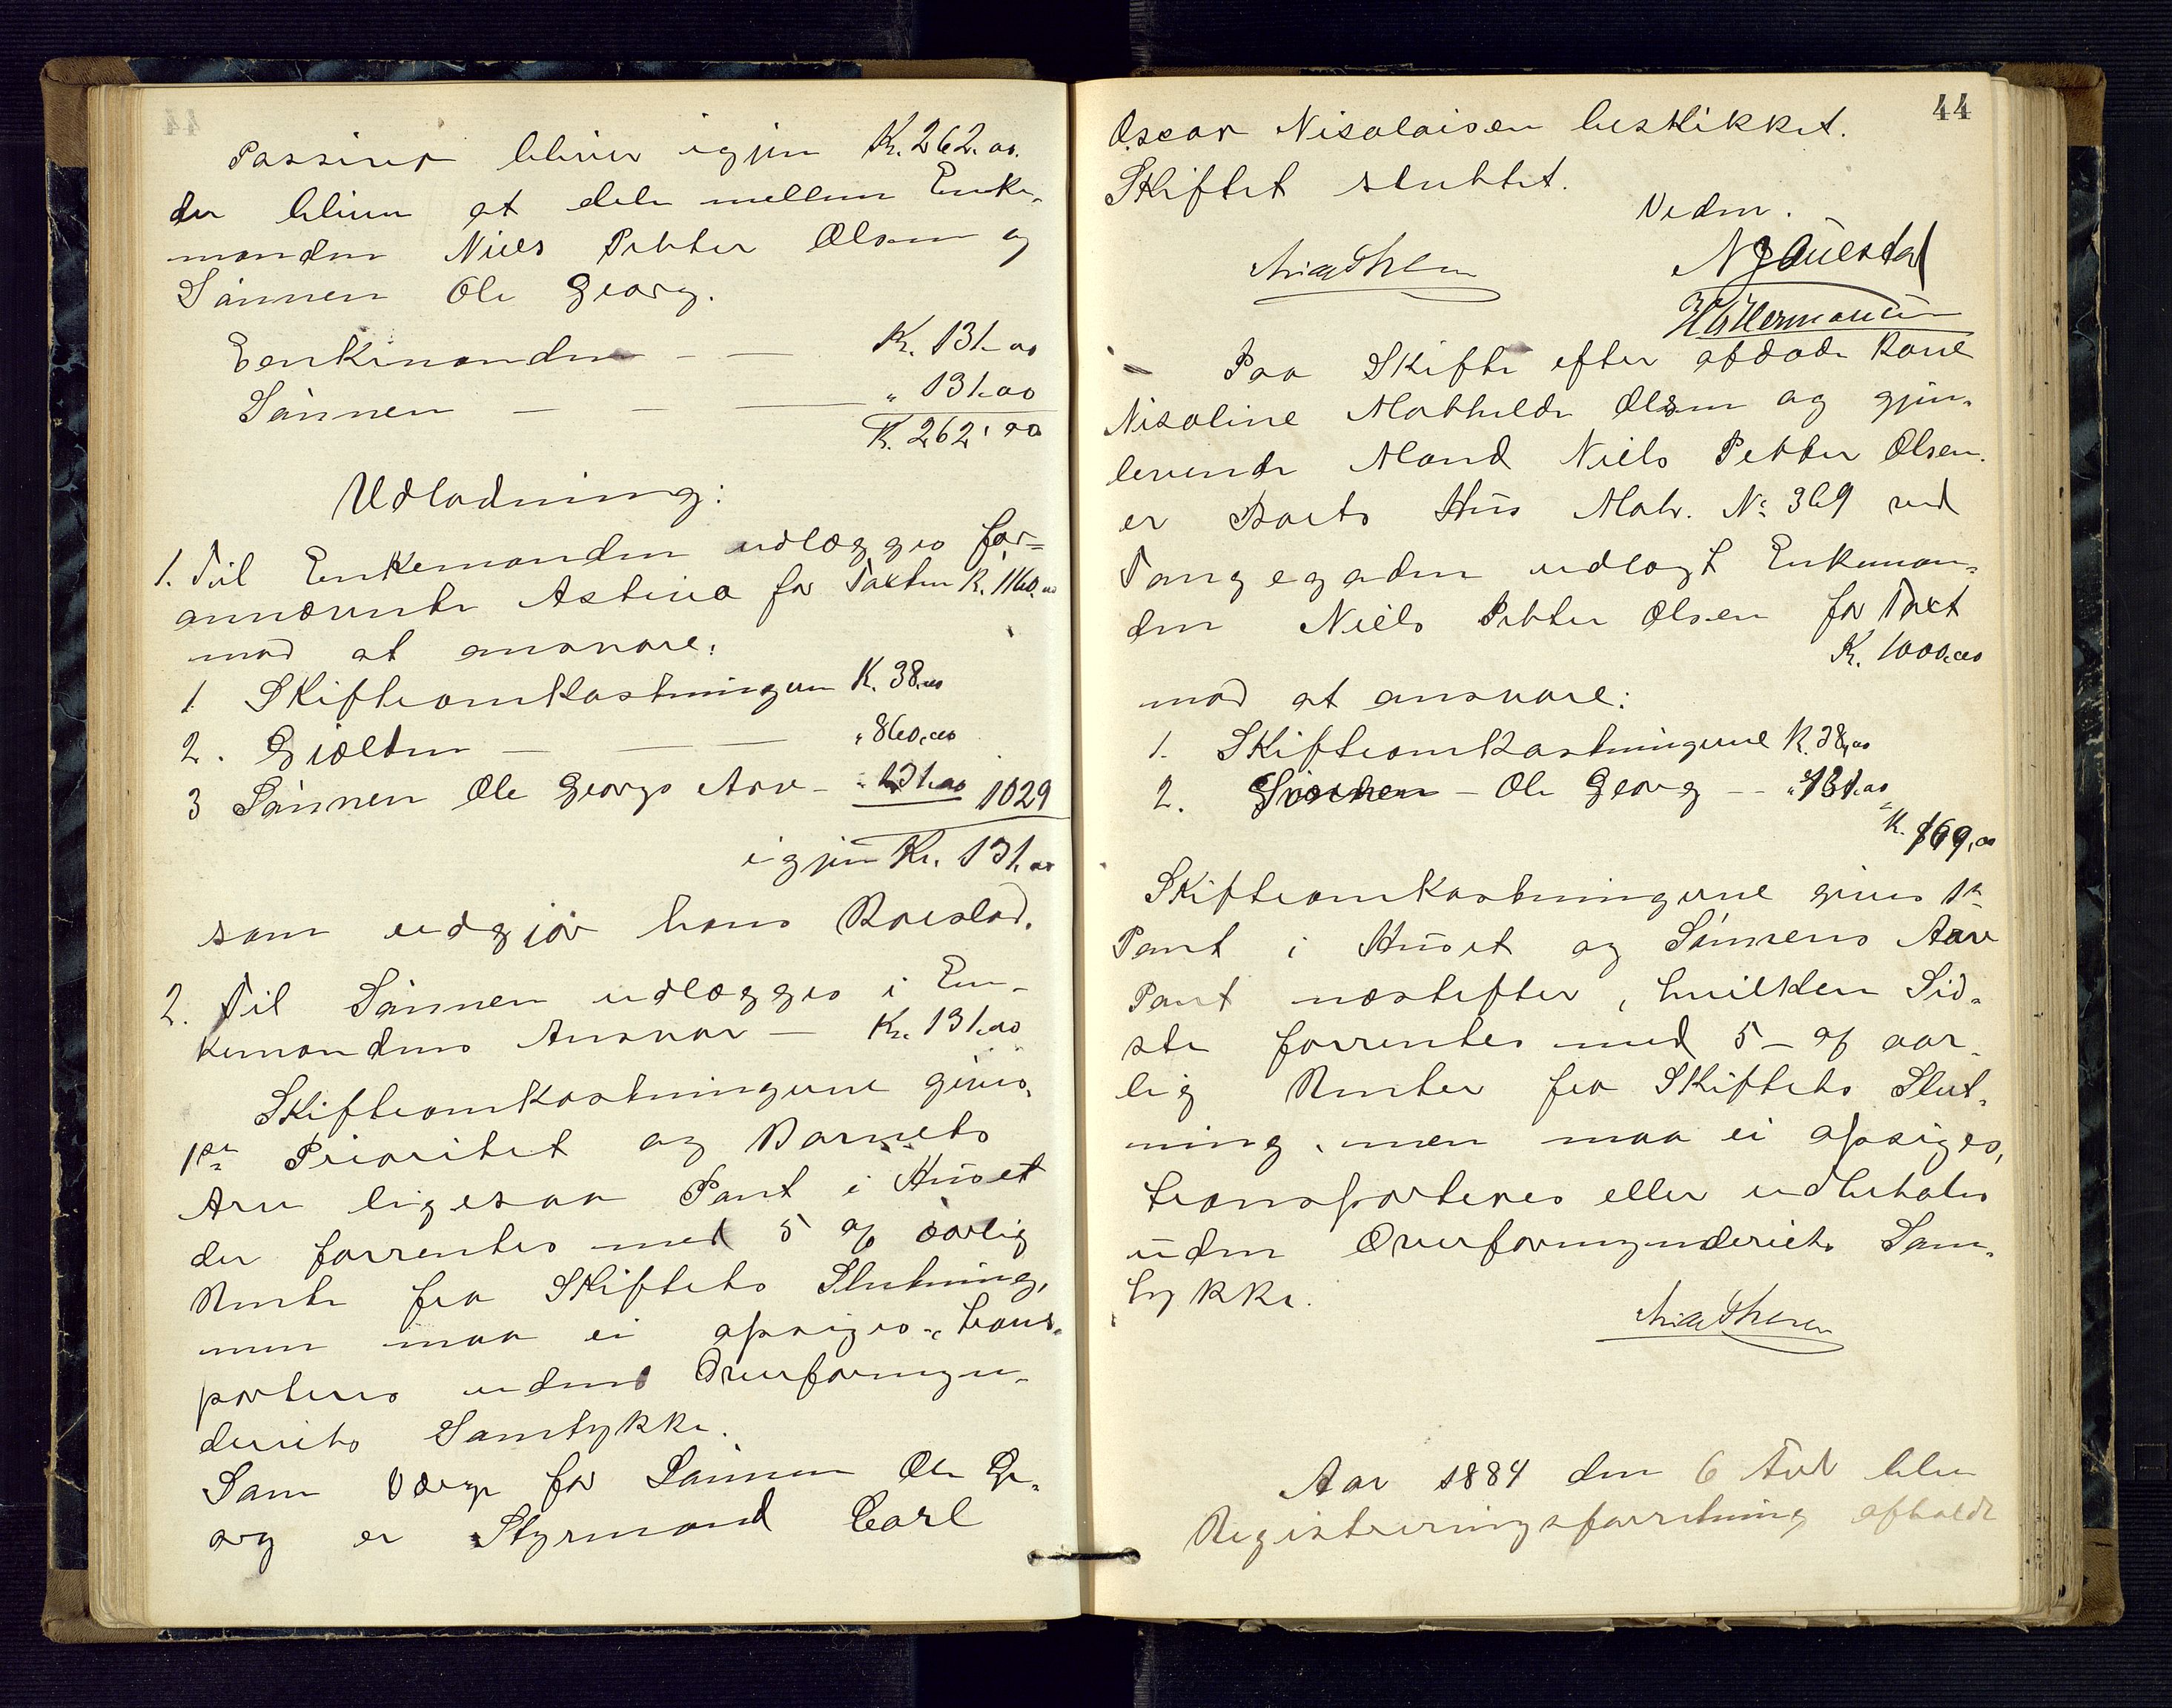 Passiver bliver igjen K. 262.00.
der bliver at dele mellem Enke-
manden Niels Petter Olsen og
Sønnen Ole Georg.
Eenkemanden - — K. 131.00
Sønnen — — — " 131.00
K. 262.00
Udlodning:
1. Til Enkemanden udlægges for=
annævnte Activa for Taxten K. 1160.00
mod at ansvare:
1 Skifteomkostningen K. 38.00
2. Gjælden — — — " 860.00
3 Sønnen Ole Georgs Arv - " 131.00 1029
igjen Kr. 131.00
som udgjør hans Boeslod.
2. Til Sønnen udlægges i En-
kemandens Ansvar — Kr. 131.00
Skifteomkostningerne gives
1ste Prioritet og Barnets
Arv ligesaa Pant i Huset
der forrentes med 5 % aarlig
Rente fra Skiftets Slutning,
men maa ei opsiges, trans-
porteres uden Overformyn-
deriets Samtykke.
Som Værge for Sønnen Ole Ge-
org er Styrmand Carl
44
Oscar Nicolaisen beskikket.
Skiftet sluttet.
Vedm.
Paa Skifte efter afdøde Kone
Nicoline Mathilde Olsen og gjen-
levende Mand Niels Petter Olsen
er Boets Hus Matr. No 369 ved
Tangegaden udlagt Enkeman-
den Niels Petter Olsen for Taxt
K. 1000.00
mod at ansvare:
1. Skifteomkostningerne K. 38,00
2. Ole Georg -- " 131.00
K. 169,00
Skifteomkostningerne gives 1ste
Pant i Huset og Sønnens Arv
Pant næstefter, hvilken Sid-
ste forrentes med 5 % aar-
lig Renter fra Skiftets Slut-
ning, men maa ei opsiges,
transporteres eller udbetales
uden Overformynderiets Sam-
tykke.
Aar 1884 den 6 blev
Registreringsforretning afholdt